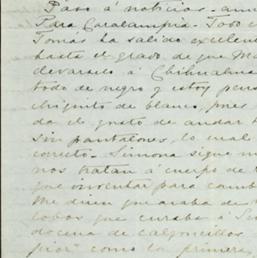 Paso á noticias
Para Caralampia. Todo
Tomás ha salido excelen
hasta el grado de que
á Chihuahua
todo de negro y estoy pens
chiquito de blanco, pues
da el gusto de andar
sin pantalones, lo cual
correcto. Simona sigue
nos tratan á cuerpo de
que inventar para camb
Me dicen que acaba de
que curaba á
docena de calzoncillos
como la primera,